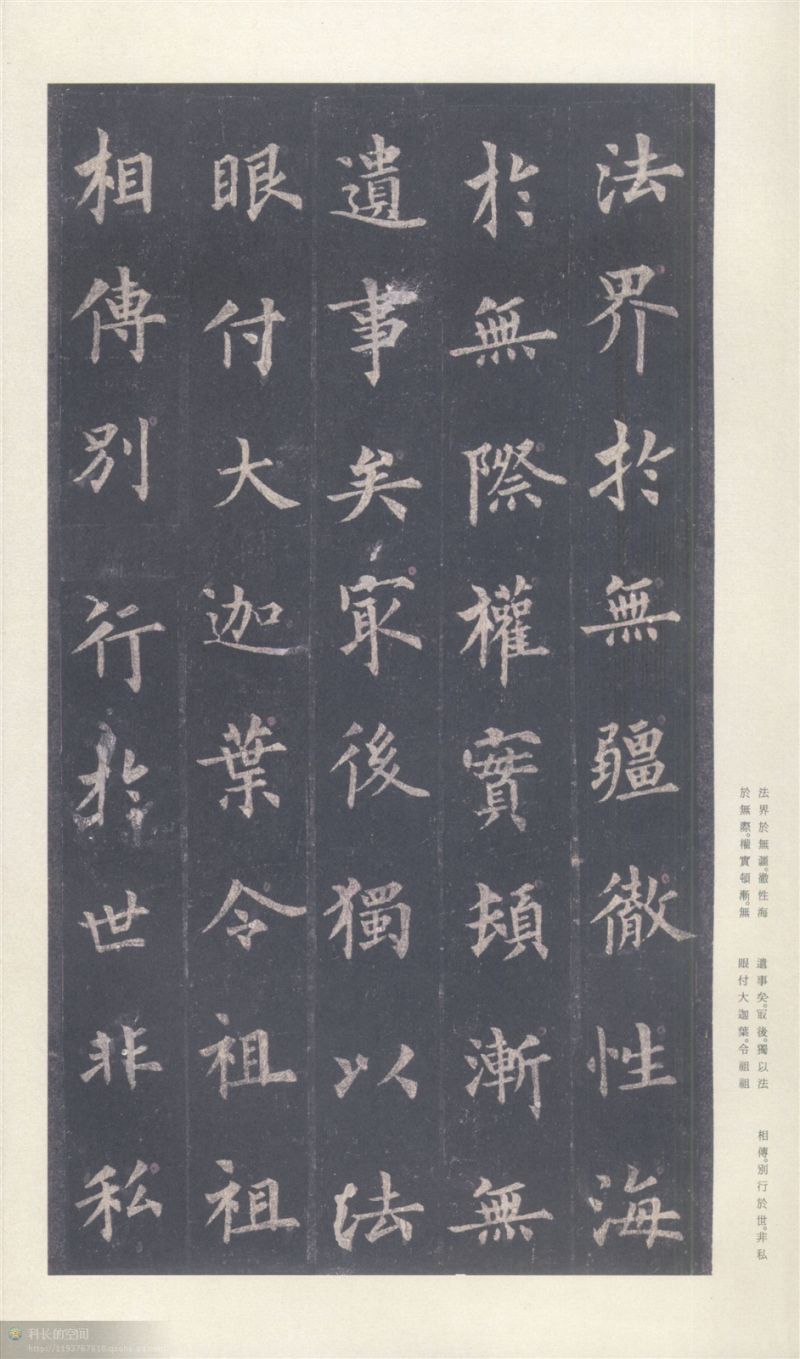 法界於無疆徹性海
於無際權實頓漸無
遺事矣冣後獨以法
眼付大迦葉令祖祖
相傳別行於世非私
法界於無疆。徹性海
於無際。權實頓漸。無
遺事矣。冣後。獨以法
眼付大迦葉。令祖祖
相傳。別行於世。非私
科长的空间